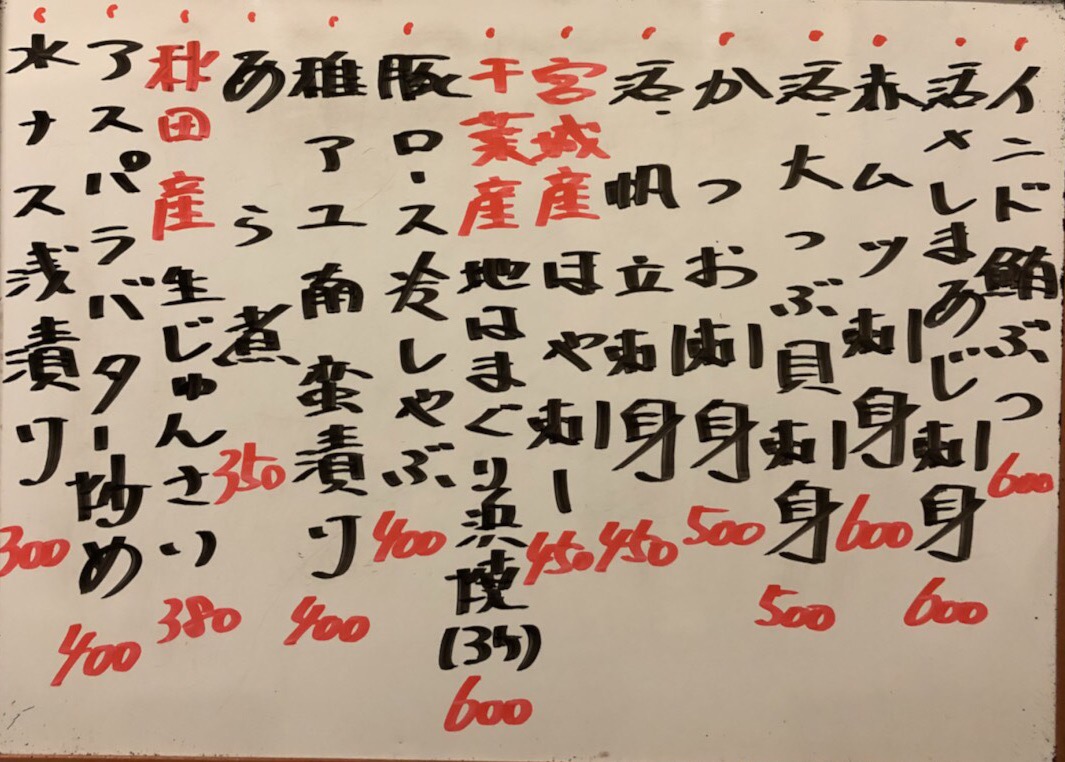 インド鮪ぶつ 600
活〆しまあじ刺身 600
赤ムツ刺身 600
活大つぶ貝刺身 500
かつお刺身 500
活帆立刺身 450
宮城産ほや刺し 450
千葉産地はまぐり浜焼(3ケ) 600
豚ロース冷しゃぶ 400
稚アユ南蛮漬り 400
あら煮 350
秋田産生じゅんさい 380
アスパラバター炒め 400
水ナス浅漬り 300